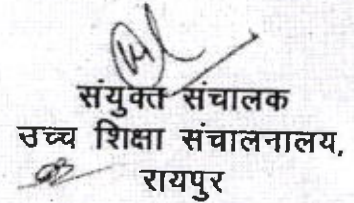 संयुक्त संचालक
उच्च शिक्षा संचालनालय,
रायपुर